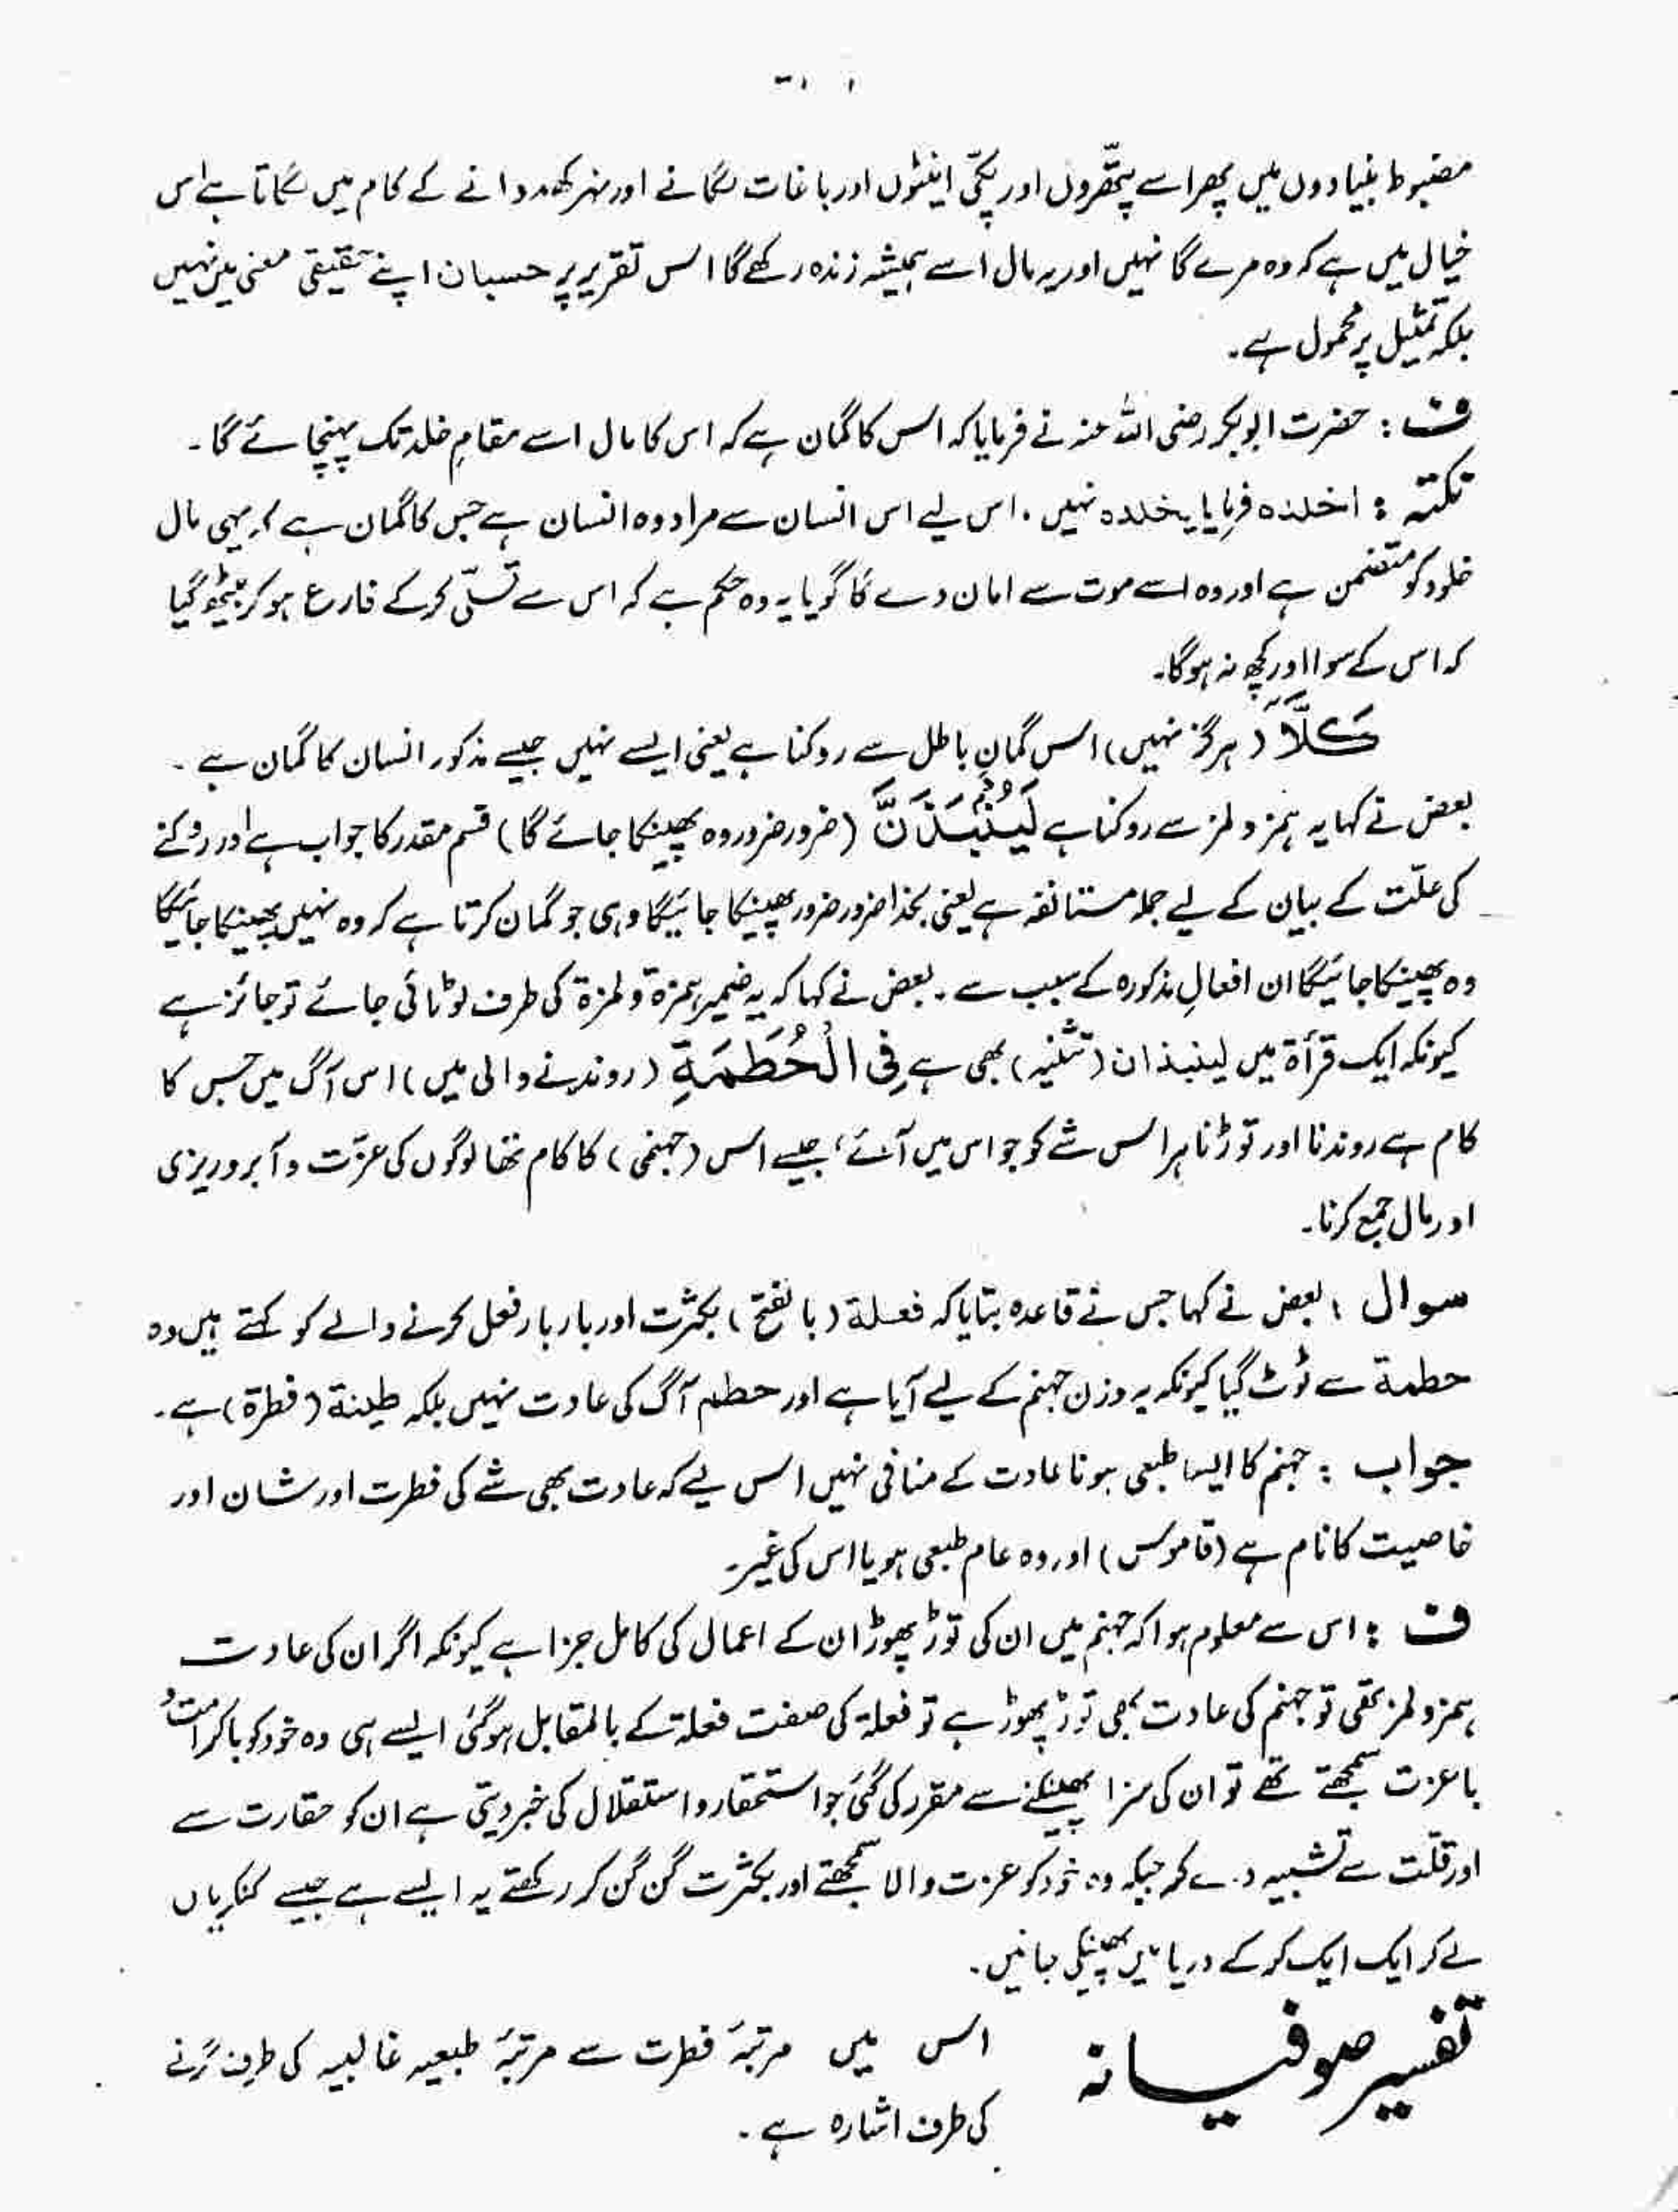 مضبوط بنیادوں میں پھر اسے پتھّروں اور پکّی اینٹوں اور باغات لگانے اور نہر کھدوانے کے کام میں لگاتا ہے اس
خیال میں ہے کہ وہ مرے گا نہیں اور یہ مال اسے ہمیشہ زندہ رکھے گا اس تقریر پر حسبان اپنے حقیقی معنی میں نہیں
بلکہ تمثیل پر محمول ہے۔
ف : حضرت ابوبکر رضی اللہ عنہ نے فرمایا کہ اس کا گمان ہے کہ اس کا مال اسے مقامِ خلد تک پہنچائے گا۔
نکتہ : اخلدہ فرمایا یخلدہ نہیں ۔ اس لیے اس انسان سے مراد وہ انسان ہے جس کا گمان ہے کہ یہی مال
خلود کو متضمن ہے اور وہ اسے موت سے امان دے گا گویا یہ وہ حکم ہے کہ اس سے تسلّی کرکے فارغ ہو کر بیٹھ گیا
کہ اس کے سوا اور کچھ نہ ہوگا۔
كَلَّا (ہرگز نہیں) اس گمانِ باطل سے روکنا ہے یعنی ایسے نہیں جیسے مذکور انسان کا گمان ہے ۔
بعض نے کہا یہ ہمز و لمز سے روکنا ہے لَيُنْۢبَذَنَّ (ضرور ضرور وہ پھینکا جائے گا) قسم مقدر کا جواب ہے اور روکنے
کی علّت کے بیان کے لیے جملہ مستانفہ ہے یعنی بخدا ضرور ضرور پھینکا جائیگا وہی جو گمان کرتا ہے کہ وہ نہیں پھینکا جائیگا
وہ پھینکا جائیگا ان افعالِ مذکورہ کے سبب سے ۔ بعض نے کہا کہ یہ ضمیر ہمزۃ و لمزۃ کی طرف لوٹائی جائے تو جائز ہے
کیونکہ ایک قرأۃ میں لینبذان (تثنیہ) بھی ہے فِي الْحُطَمَةِ (روندنے والی میں) اس آگ میں جس کا
کام ہے روندنا اور توڑنا ہر اس شے کو جو اس میں آئے، جیسے اس (جہنمی) کا کام تھا لوگوں کی عزّت و آبرو ریزی
اور مال جمع کرنا۔
سوال : بعض نے کہا جس نے قاعدہ بتایا کہ فعلۃ (بالفتح) بکثرت اور بار بار فعل کرنے والے کو کہتے ہیں وہ
حطمۃ سے ٹوٹ گیا کیونکہ یہ وزن جہنم کے لیے آیا ہے اور حطم آگ کی عادت نہیں بلکہ طینۃ (فطرۃ) ہے۔
جواب : جہنم کا ایسا طبعی ہونا عادت کے منافی نہیں اس لیے کہ عادت بھی شے کی فطرت اور شان اور
خاصیت کا نام ہے (قاموس) اور وہ عام طبعی ہو یا اس کی غیر۔
ف : اس سے معلوم ہوا کہ جہنم میں ان کی توڑ پھوڑ ان کے اعمال کی کامل جزا ہے کیونکہ اگر ان کی عادت
ہمز و لمز تھی تو جہنم کی عادت بھی توڑ پھوڑ ہے تو فعلۃ کی صفت فعلۃ کے بالمقابل ہوگئی ایسے ہی وہ خود کو باکرامت و
باعزت سمجھتے تھے تو ان کی سزا پھینکنے سے مقرر کی گئی جو استحقار و استقلال کی خبر دیتی ہے ان کو حقارت سے
اور قلّت سے تشبیہ دے کر جبکہ وہ خود کو عزت والا سمجھتے اور بکثرت گن گن کر رکھتے یہ ایسے ہے جیسے کنکریاں
لے کر ایک ایک کر کے دریا میں پھینکی جائیں۔
تفسیر صوفیانہ اس میں مرتبۂ فطرت سے مرتبۂ طبعیہ غالبیہ کی طرف گرنے
کی طرف اشارہ ہے ۔